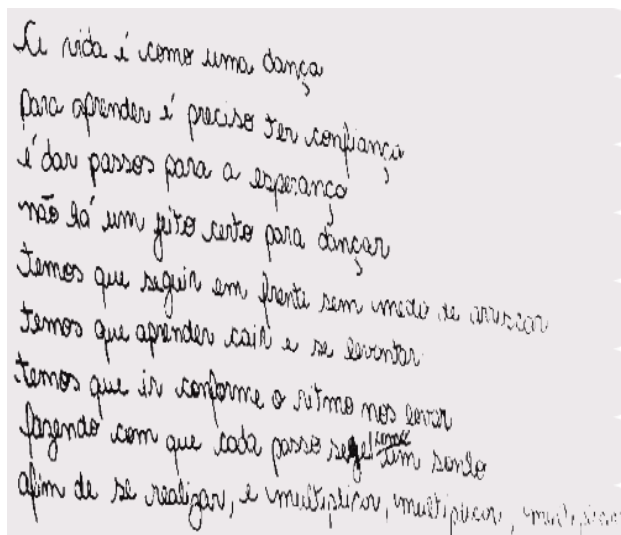 A vida é como uma dança
para aprender é preciso ter confiança
é dar passos para a esperança
não há um jeito certo para dançar
temos que seguir em frente sem medo de arriscar
temos que aprender cair e se levantar
temos que ir conforme o ritmo nos levar
fazendo com que cada passo seje um sonho
afim de se realizar, e multiplicar, multiplicar, multiplicar